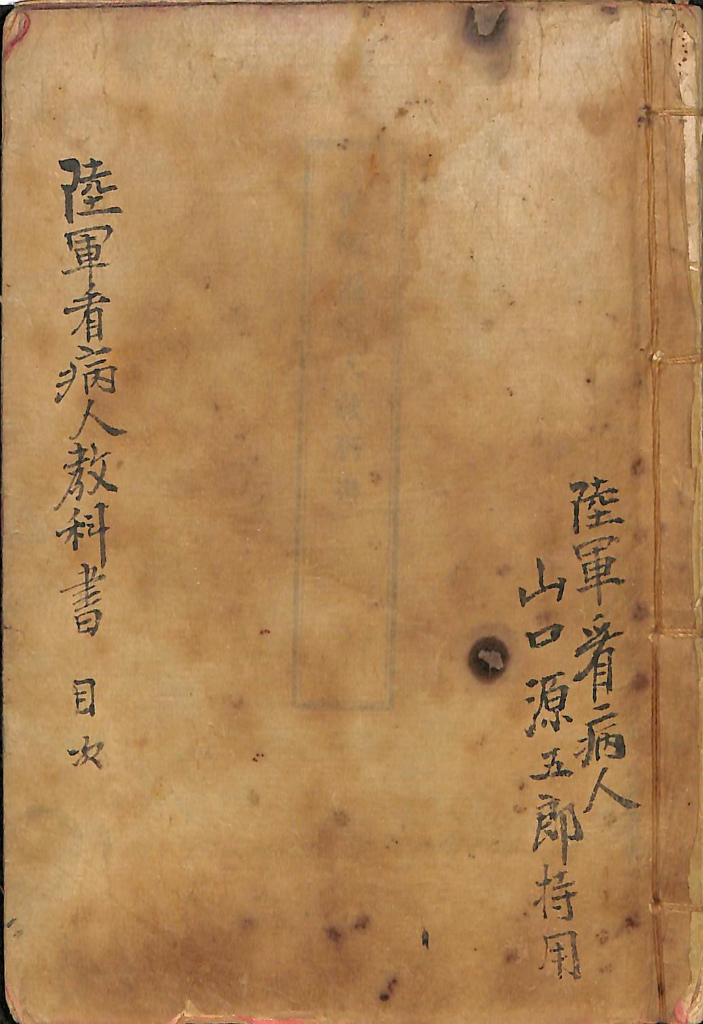 陸軍看病人
山口源五郎持用
陸軍看病人教科書 目次